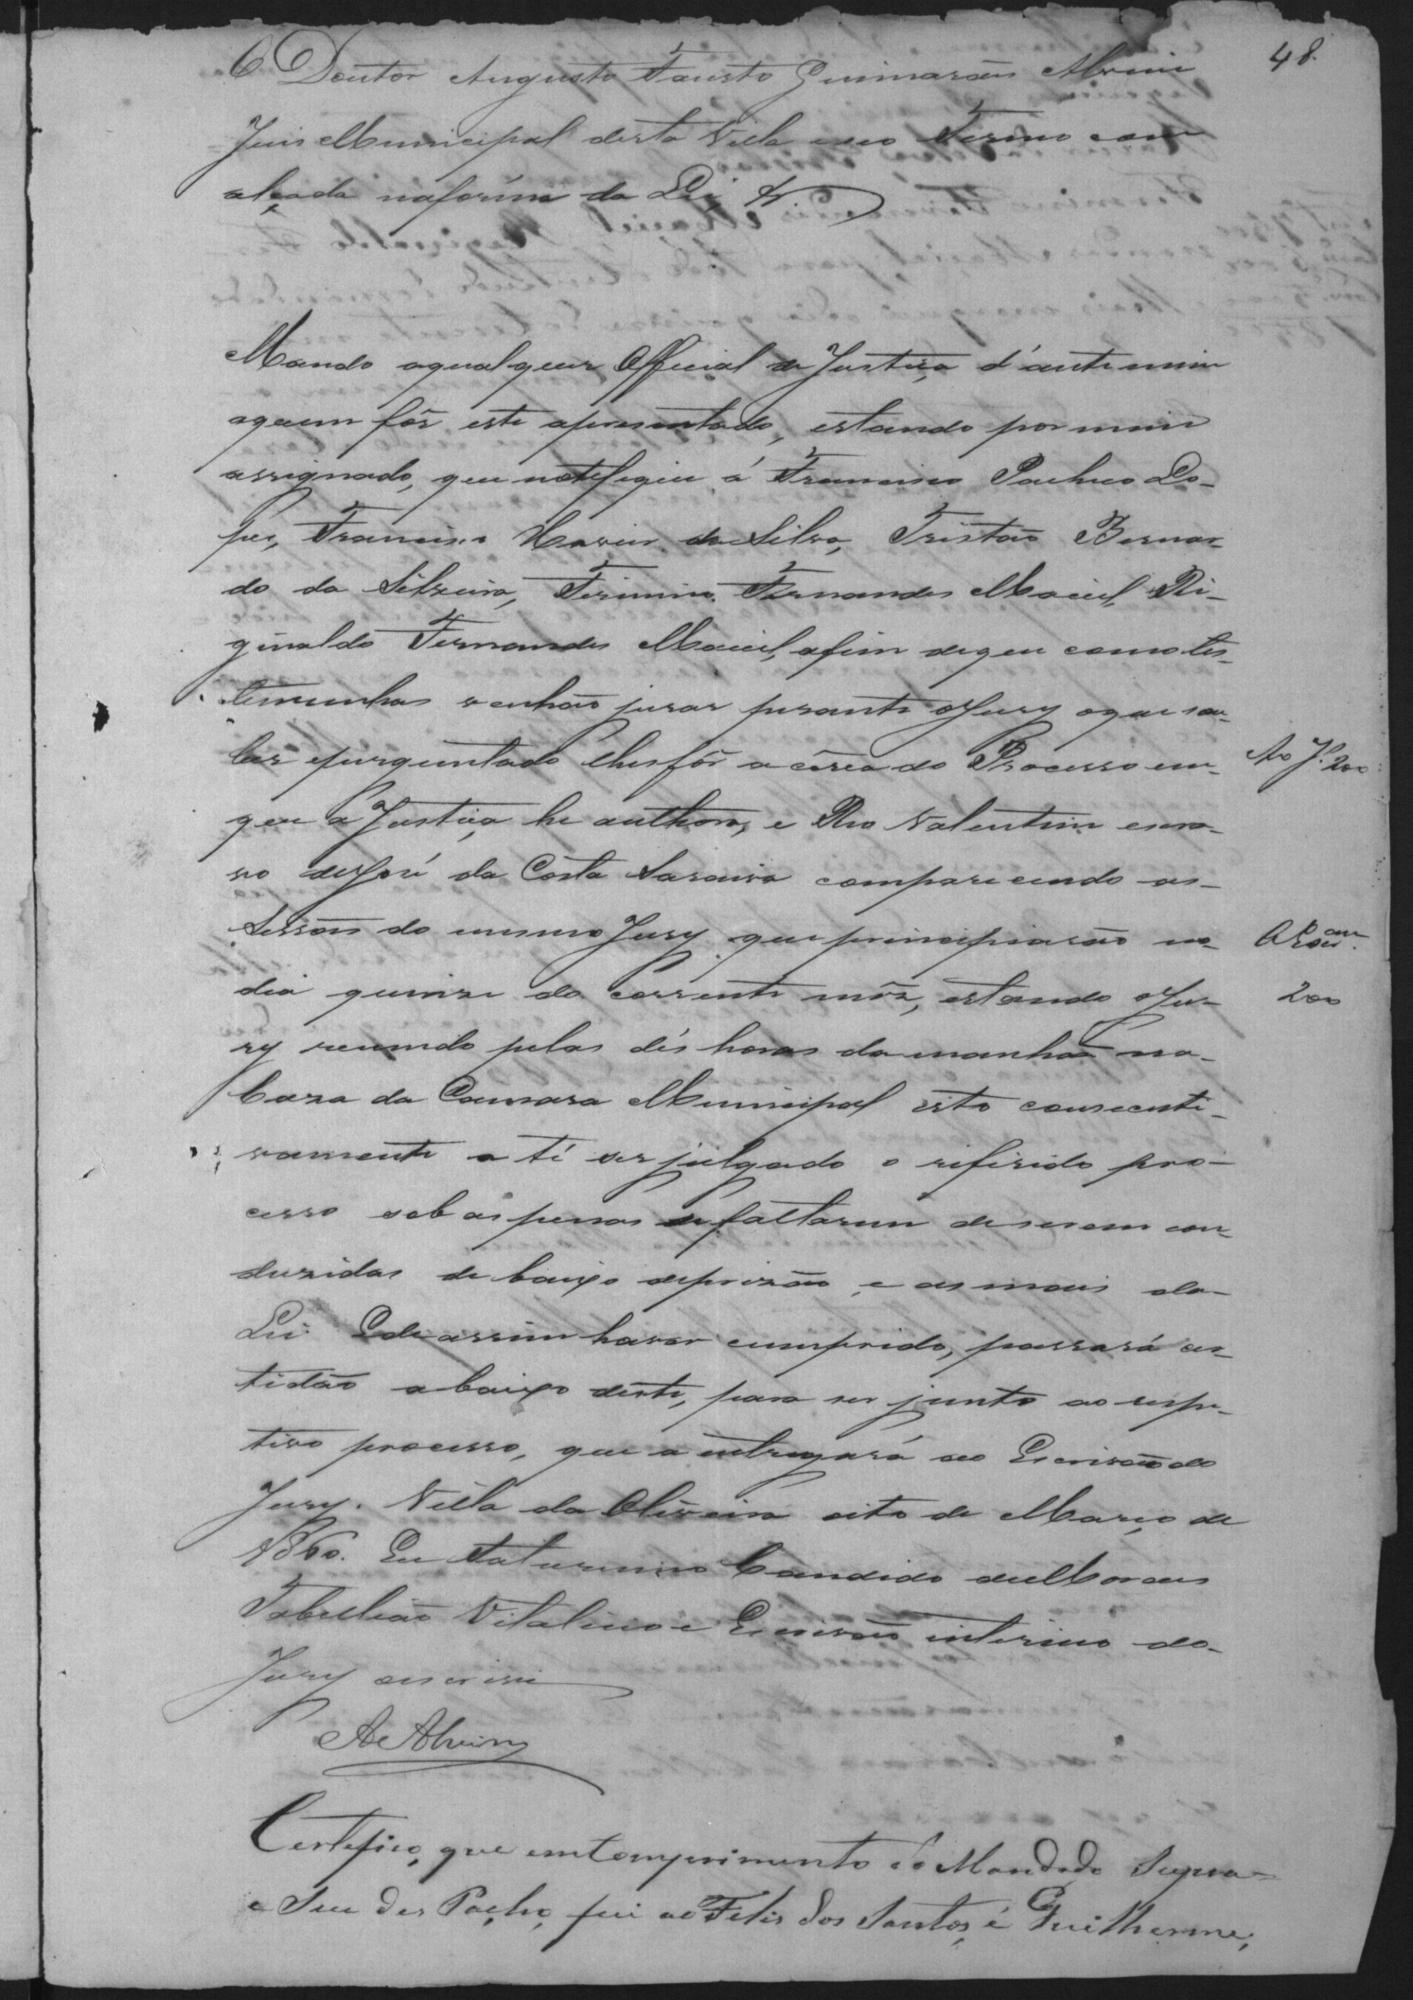 48.
O Doutor Augusto Fausto Guimarães Alvim
Juis Municipal desta Villa e seo Termo com
alçada na forma da Lei &.
Mando aqualquer Official de Justiça d'ante mim
aquem fôr este apresentado, estando por mim
assignado, que notefique á Francisco Pacheco Lo-
pes, Francisco Xavier da Silva, Tristão Bernar-
do da Silveira, Firmino Fernandes Maciel, Re-
ginaldo Fernandes Maciel, afim deque como tes-
temunhas venhão jurar perante o Jury oque sou-
ber eperguntado lhes fôr a cêrca do Processo em-
que a Justiça he authora, e Reo Valentim escra-
vo de José da Costa Saraiva comparecendo as-
Sessões do mesmo Jury que principiarão no-
dia quinze do corrente mêz, estando o Ju-
ry reunido pelas dés horas da manhaã na-
Caza da Camara Municipal isto consecuti-
vamente a té ser julgado o referido pro-
cesso sob as penas se faltarem de serem con-
duzidas de baixo deprizão, e as mais da-
Lei. E de assim haver cumprido, passará cer-
tidão abaixo deste, para ser junto ao respe-
tivo processo, que a entregará ao Escrivão do
Jury. Villa da Oliveira oito de Março de
1860. Eu Saturnino Candido de Moraes
Tabelião Vitalicio e Escrivão interino do-
Jury escrivi
A e Alvim
Ao J. 200
200
Certefico, que em Comprimento do Mandado Supra
e Seu Des Pacho, fui ao Felis dos Santos, é Guilherme,